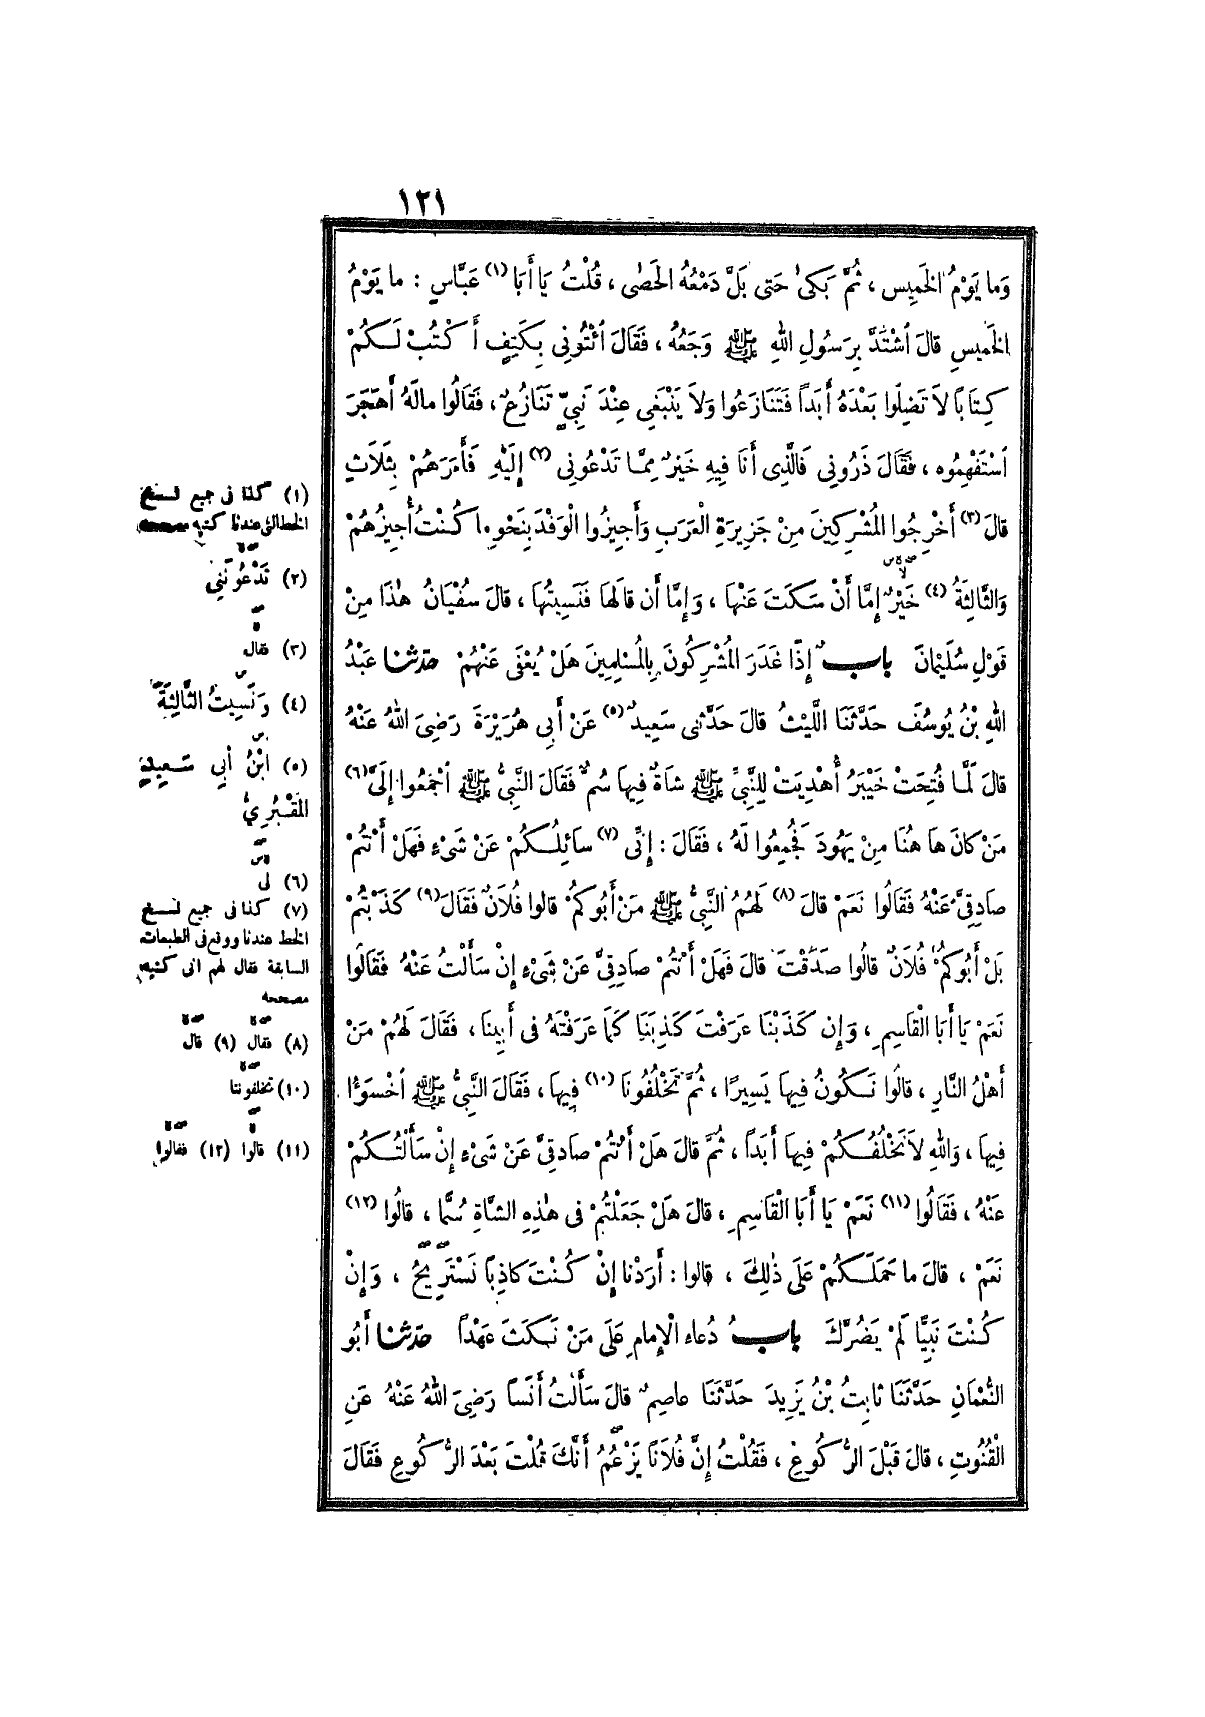 ١٢١
وَما يَوْمُ الخَمِيسِ ، ثُمَّ بَكىٰ حَتى بَلَّ دَمْعُهُ الحَصٰى ، قُلْتُ يَا أَبَا (١) عَبَّاسٍ : ما يَوْمُ
الخَمِيسِ قالَ ٱشْتَدَّ بِرَسُولِ اللهِ ﷺ وَجَعُهُ ، فَقَالَ ٱئْتُونِى بِكَتِفٍ أَكْتُبْ لَكُمْ
كِتَابًا لاَ تَضِلُّوا بَعْدَهُ أَبَداً فَتَنَازَعُوا وَلاَ يَنْبَغِى عِنْدَ نَبِيٍّ تَنَازُعٌ ، فَقَالُوا مالَهُ أَهَجَرَ
ٱسْتَفْهِمُوه ، فَقَالَ ذَرُونِى فَالَّذِى أَنَا فِيهِ خَيْرٌ مِمَّا تَدْعُونِى (٢) إِلَيْهِ فَأَمَرَهُمْ بِثَلاَثٍ
قالَ (٣) أَخْرِجُوا المُشْرِكِينَ مِنْ جَزِيرَةِ الْعَرَبِ وَأَجِيزُوا الْوَفْدَ بِنَحْوِ ما كُنْتُ أُجِيزُهُمْ
وَالثَّالِثَةُ (٤) خَيْرٌ إِمَّا أَنْ سَكَتَ عَنْهَا ، وَإِمَّا أَن قالَهَا فَنَسِيتُهَا ، قالَ سُفْيَانُ هٰذَا مِنْ
قَوْلِ سُلَيْمَانَ بابٌ إِذَا غَدَرَ المُشْرِكُونَ بِالْمُسْلِمِينَ هَلْ يُعْفَى عَنْهُمْ حدّثنا عَبْدُ
اللهِ بْنُ يُوسُفَ حَدَّثَنَا اللَّيْثُ قالَ حَدَّثَنِى سَعِيدٌ (٥) عَنْ أَبِى هُرَيْرَةَ رَضِىَ اللهُ عَنْهُ
قالَ لَمَّا فُتِحَتْ خَيْبَرُ أُهْدِيَتْ لِلنَّبِيِّ ﷺ شاةٌ فِيهَا سُمٌّ فَقَالَ النَّبِيُّ ﷺ ٱجْمَعُوا إِلَىَّ (٦)
مَنْ كانَ هَا هُنَا مِنْ يَهُودَ فَجُمِعُوا لَهُ ، فَقَالَ : إِنِّى (٧) سَائِلُكُمْ عَنْ شَىْءٍ فَهَلْ أَنْتُمْ
صَادِقِىَّ عَنْهُ فَقَالُوا نَعَمْ قالَ (٨) لَهُمُ النَّبِيُّ ﷺ مَنْ أَبُوكُمْ قالوا فُلاَنٌ فَقَالَ (٩) كَذَبْتُمْ
بَلْ أَبُوكُمْ فُلاَنٌ قالُوا صَدَقْتَ قالَ فَهَلْ أَنْتُمْ صادِقِىَّ عَنْ شَىْءٍ إِنْ سَأَلْتُ عَنْهُ فَقَالُوا
نَعَمْ يَا أَبَا الْقَاسِمِ ، وَإِن كَذَبْنَا عَرَفْتَ كَذِبَنَا كَمَا عَرَفْتَهُ فى أَبِينَا ، فَقَالَ لَهُمْ مَنْ
أَهْلُ النَّارِ ، قالُوا نَكُونُ فِيهَا يَسِيرًا ، ثُمَّ تَخْلُفُونَا (١٠) فِيهَا ، فَقَالَ النَّبِيُّ ﷺ ٱخْسَؤُا
فِيهَا ، وَاللهِ لاَ نَخْلُفُكُمْ فِيهَا أَبَدًا ، ثُمَّ قالَ هَلْ أَنْتُمْ صَادِقِىَّ عَنْ شَىْءٍ إِنْ سَأَلْتُكُمْ
عَنْهُ ، فَقَالُوا (١١) نَعَمْ يَا أَبَا الْقَاسِمِ ، قالَ هَلْ جَعَلْتُمْ فى هٰذِهِ الشَّاةِ سُمًّا ، قالُوا (١٢)
نَعَمْ ، قالَ ما حَمَلَكُمْ عَلَى ذٰلِكَ ، قالوا : أَرَدْنَا إِنْ كُنْتَ كاذِبًا نَسْتَرِيحُ ، وَإِنْ
كُنْتَ نَبِيًّا لَمْ يَضُرَّكَ بابُ دُعاءِ الْإِمامِ عَلَى مَنْ نَكَثَ عَهْدًا حدّثنا أَبُو
النُّعْمَانِ حَدَّثَنَا ثابِتُ بْنُ يَزِيدَ حَدَّثَنَا عاصِمٌ قالَ سَأَلْتُ أَنَسًا رَضِىَ اللهُ عَنْهُ عَنِ
الْقُنُوتِ ، قالَ قَبْلَ الرُّكُوعِ ، فَقُلْتُ إِنَّ فُلاَنًا يَزْعُمُ أَنَّكَ قُلْتَ بَعْدَ الرُّكُوعِ فَقَالَ
(١) كذا فى جميع نسخ
الخط التى عندنا كتبه مصححه
(٢) تَدْعُونَنِى
(٣) فقال
(٤) وَنَسِيتُ الثَّالِثَةَ
(٥) ابْنُ أَبِى سَعِيدٍ
المَقْبُرِيُّ
(٦) لى
(٧) كذا فى جميع نسخ
الخط عندنا ووقع فى الطبعات
السابقة فقال لهم انى كتبه
مصححه
(٨) فقال (٩) قال
(١٠) تخلفوننا
(١١) قالوا (١٢) فقالوا